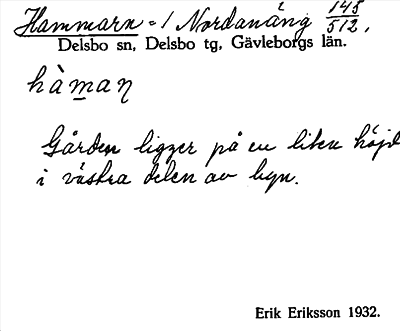 Hammarn = 1 Nordanäng 145/512.
Delsbo sn, Delsbo tg, Gävleborgs län.
hàmaƞ
Gården ligger på en liten höjd
i västra delen av byn.
Erik Eriksson 1932.